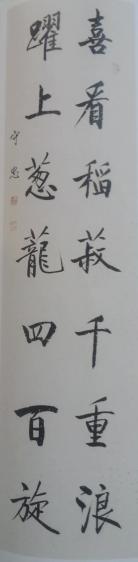 喜看稻菽千重浪
躍上葱蘢四百旋
守忠